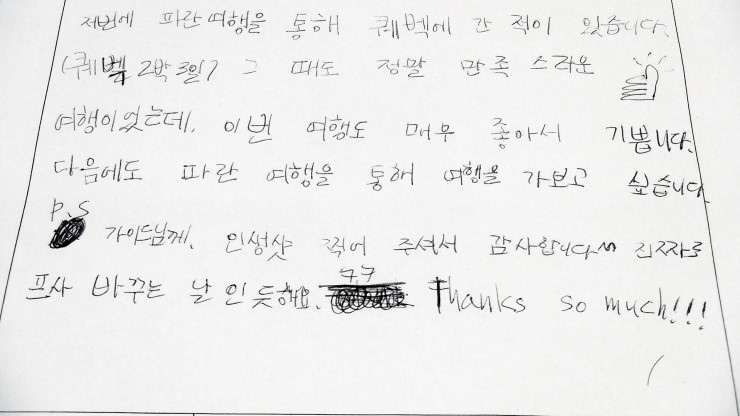 저번에 파란여행을 통해 퀘벡에 간 적이 있습니다.
(퀘벡 2박3일) 그 때도 정말 만족스러운
여행이었는데, 이번 여행도 매우 좋아서 기쁩니다.
다음에도 파란 여행을 통해 여행을 가보고 싶습니다.
P.S
가이드님께, 인생샷 찍어 주셔서 감사합니다~ 진짜로
프사 바꾸는 날인듯해요. ㅋㅋ Thanks so much!!!